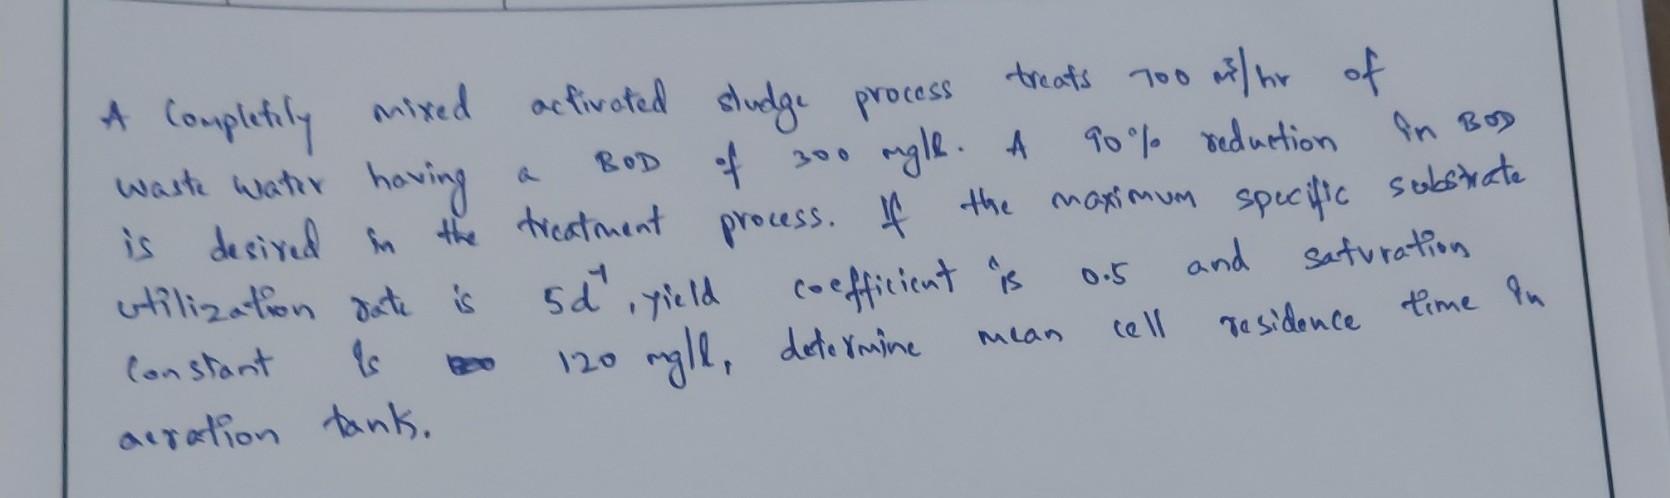 A Completily mixed activated sludge process treats 700 m³/hr of
waste water having a BOD of 300 mg/l. A 90% reduction in BOD
is desired in the treatment process. If the maximum specific substrate
utilization rate is 5d⁻¹, yield coefficient is 0.5 and saturation
constant is 120 mg/l, determine mean cell residence time in
aeration tank.